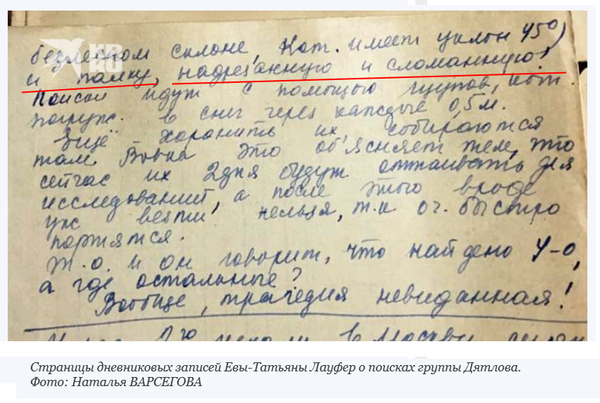 безлесном склоне, кот. имеет уклон 45°)
и палку, надрезанную и сломанную!
Поиски идут с помощью щупов, кот.
погруж. в снег через каждые 0,5 м.
Ещё хоронить их собираются
там. Вовка это объясняет тем, что
сейчас их 2 дня будут оттаивать для
исследований, а после этого вроде
уже везти нельзя, т.к оч. быстро
портятся.
Т.о. и он говорит, что найдено 4-о,
а где остальные?
Вообще, трагедия невиданная!
в Москви
KP
Страницы дневниковых записей Евы-Татьяны Лауфер о поисках группы Дятлова.
Фото: Наталья ВАРСЕГОВА